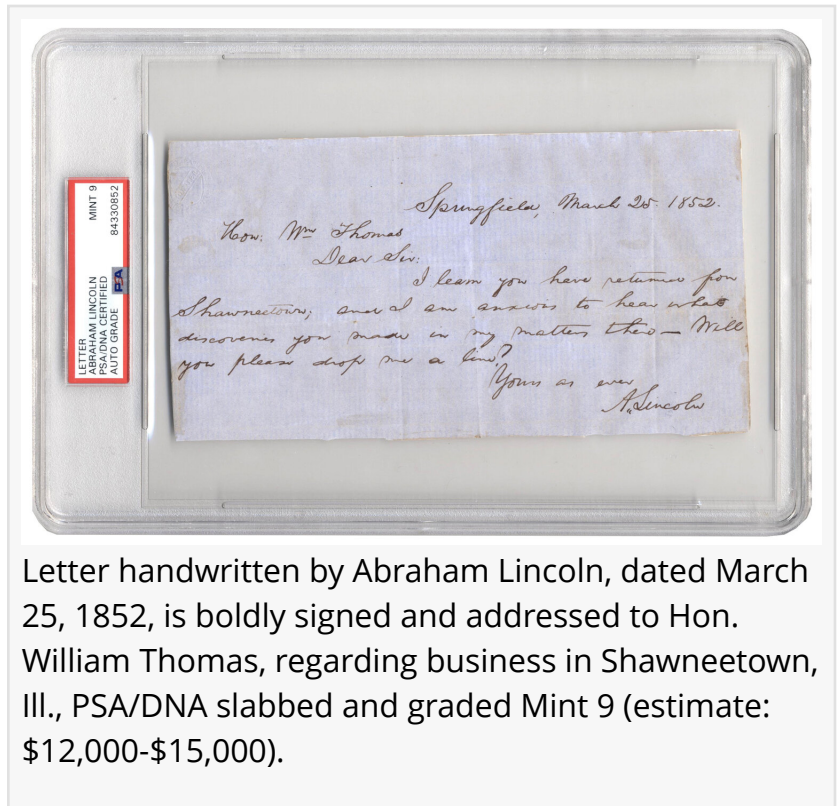 LETTER MINT 9
ABRAHAM LINCOLN
PSA/DNA CERTIFIED
AUTO GRADE PSA 84330852
Springfield, March 25. 1852.
Hon: Wm Thomas
Dear Sir:
I learn you have returned from
Shawneetown; and I am anxious to hear what
discoveries you made in my matters there — Will
you please drop me a line?
Yours as ever
A. Lincoln
Letter handwritten by Abraham Lincoln, dated March
25, 1852, is boldly signed and addressed to Hon.
William Thomas, regarding business in Shawneetown,
Ill., PSA/DNA slabbed and graded Mint 9 (estimate:
$12,000-$15,000).